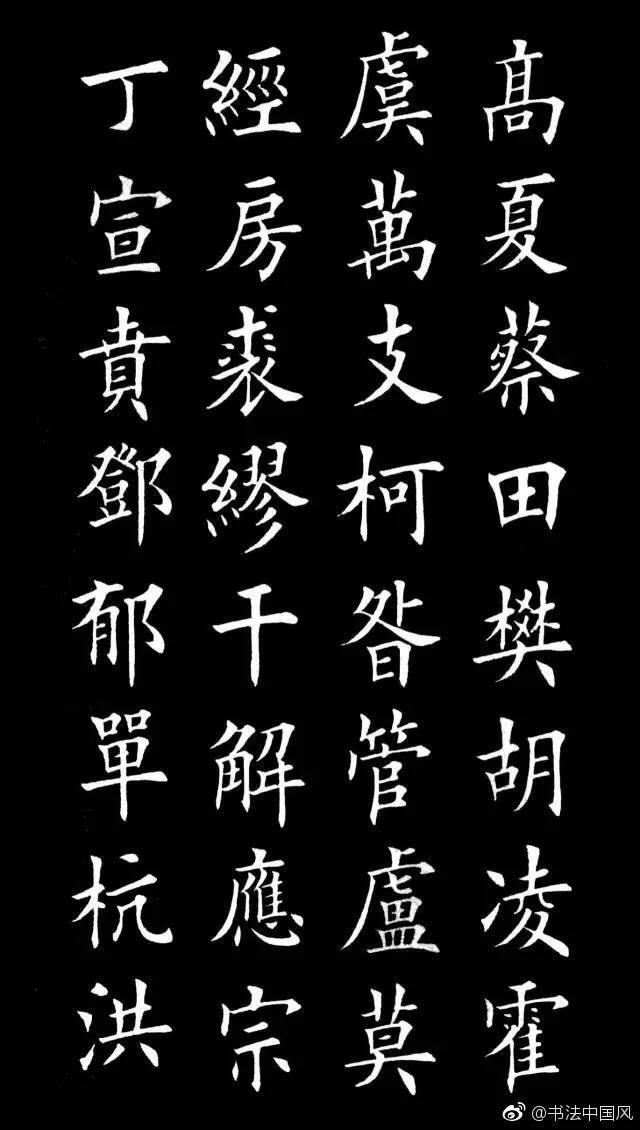 高夏蔡田樊胡凌霍
虞萬支柯昝管盧莫
經房裘繆干解應宗
丁宣賁鄧郁單杭洪
@书法中国风